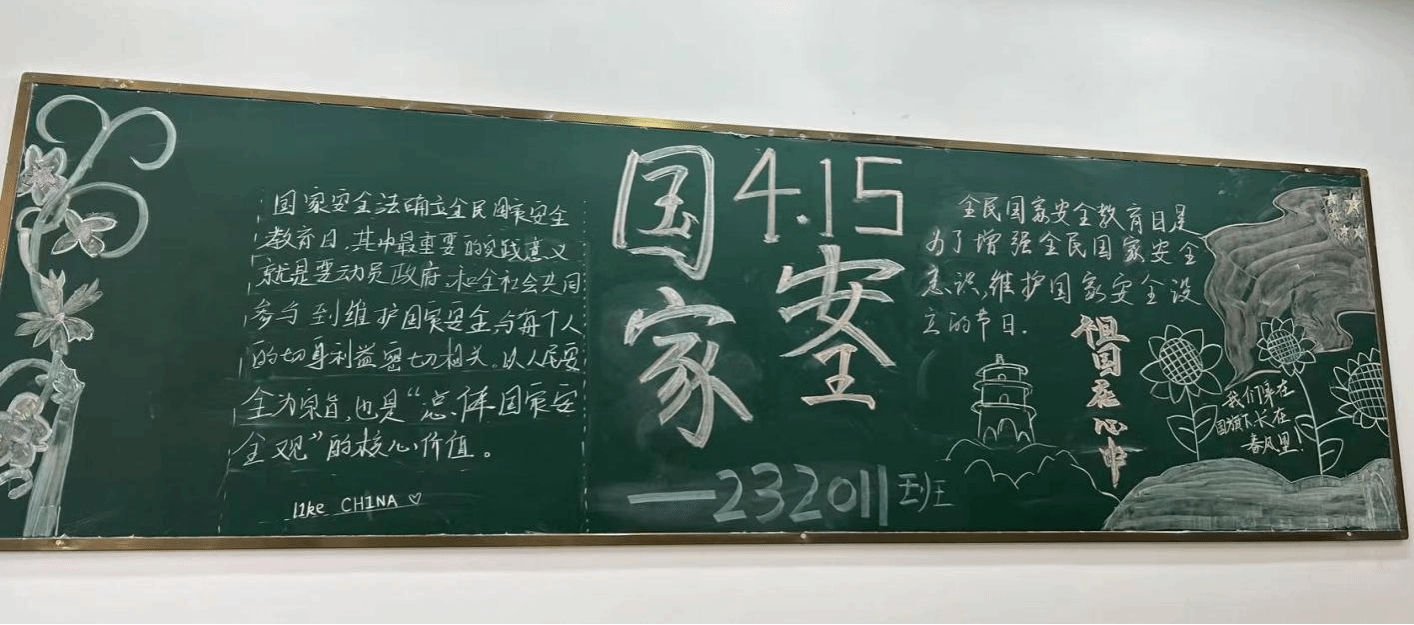 国家安全法确立全民国家安全
教育日,其中最重要的实践意义
就是要动员政府和全社会共同
参与到维护国家安全与每个人
的切身利益密切相关。以人民安
全为宗旨,也是“总体国家安
全观”的核心价值。
like CHINA ♡
4.15
国家
安全
——232011班
全民国家安全教育日是
为了增强全民国家安全
意识,维护国家安全设
立的节日.
祖国在心中
我们身在
国旗下长在
春风里!